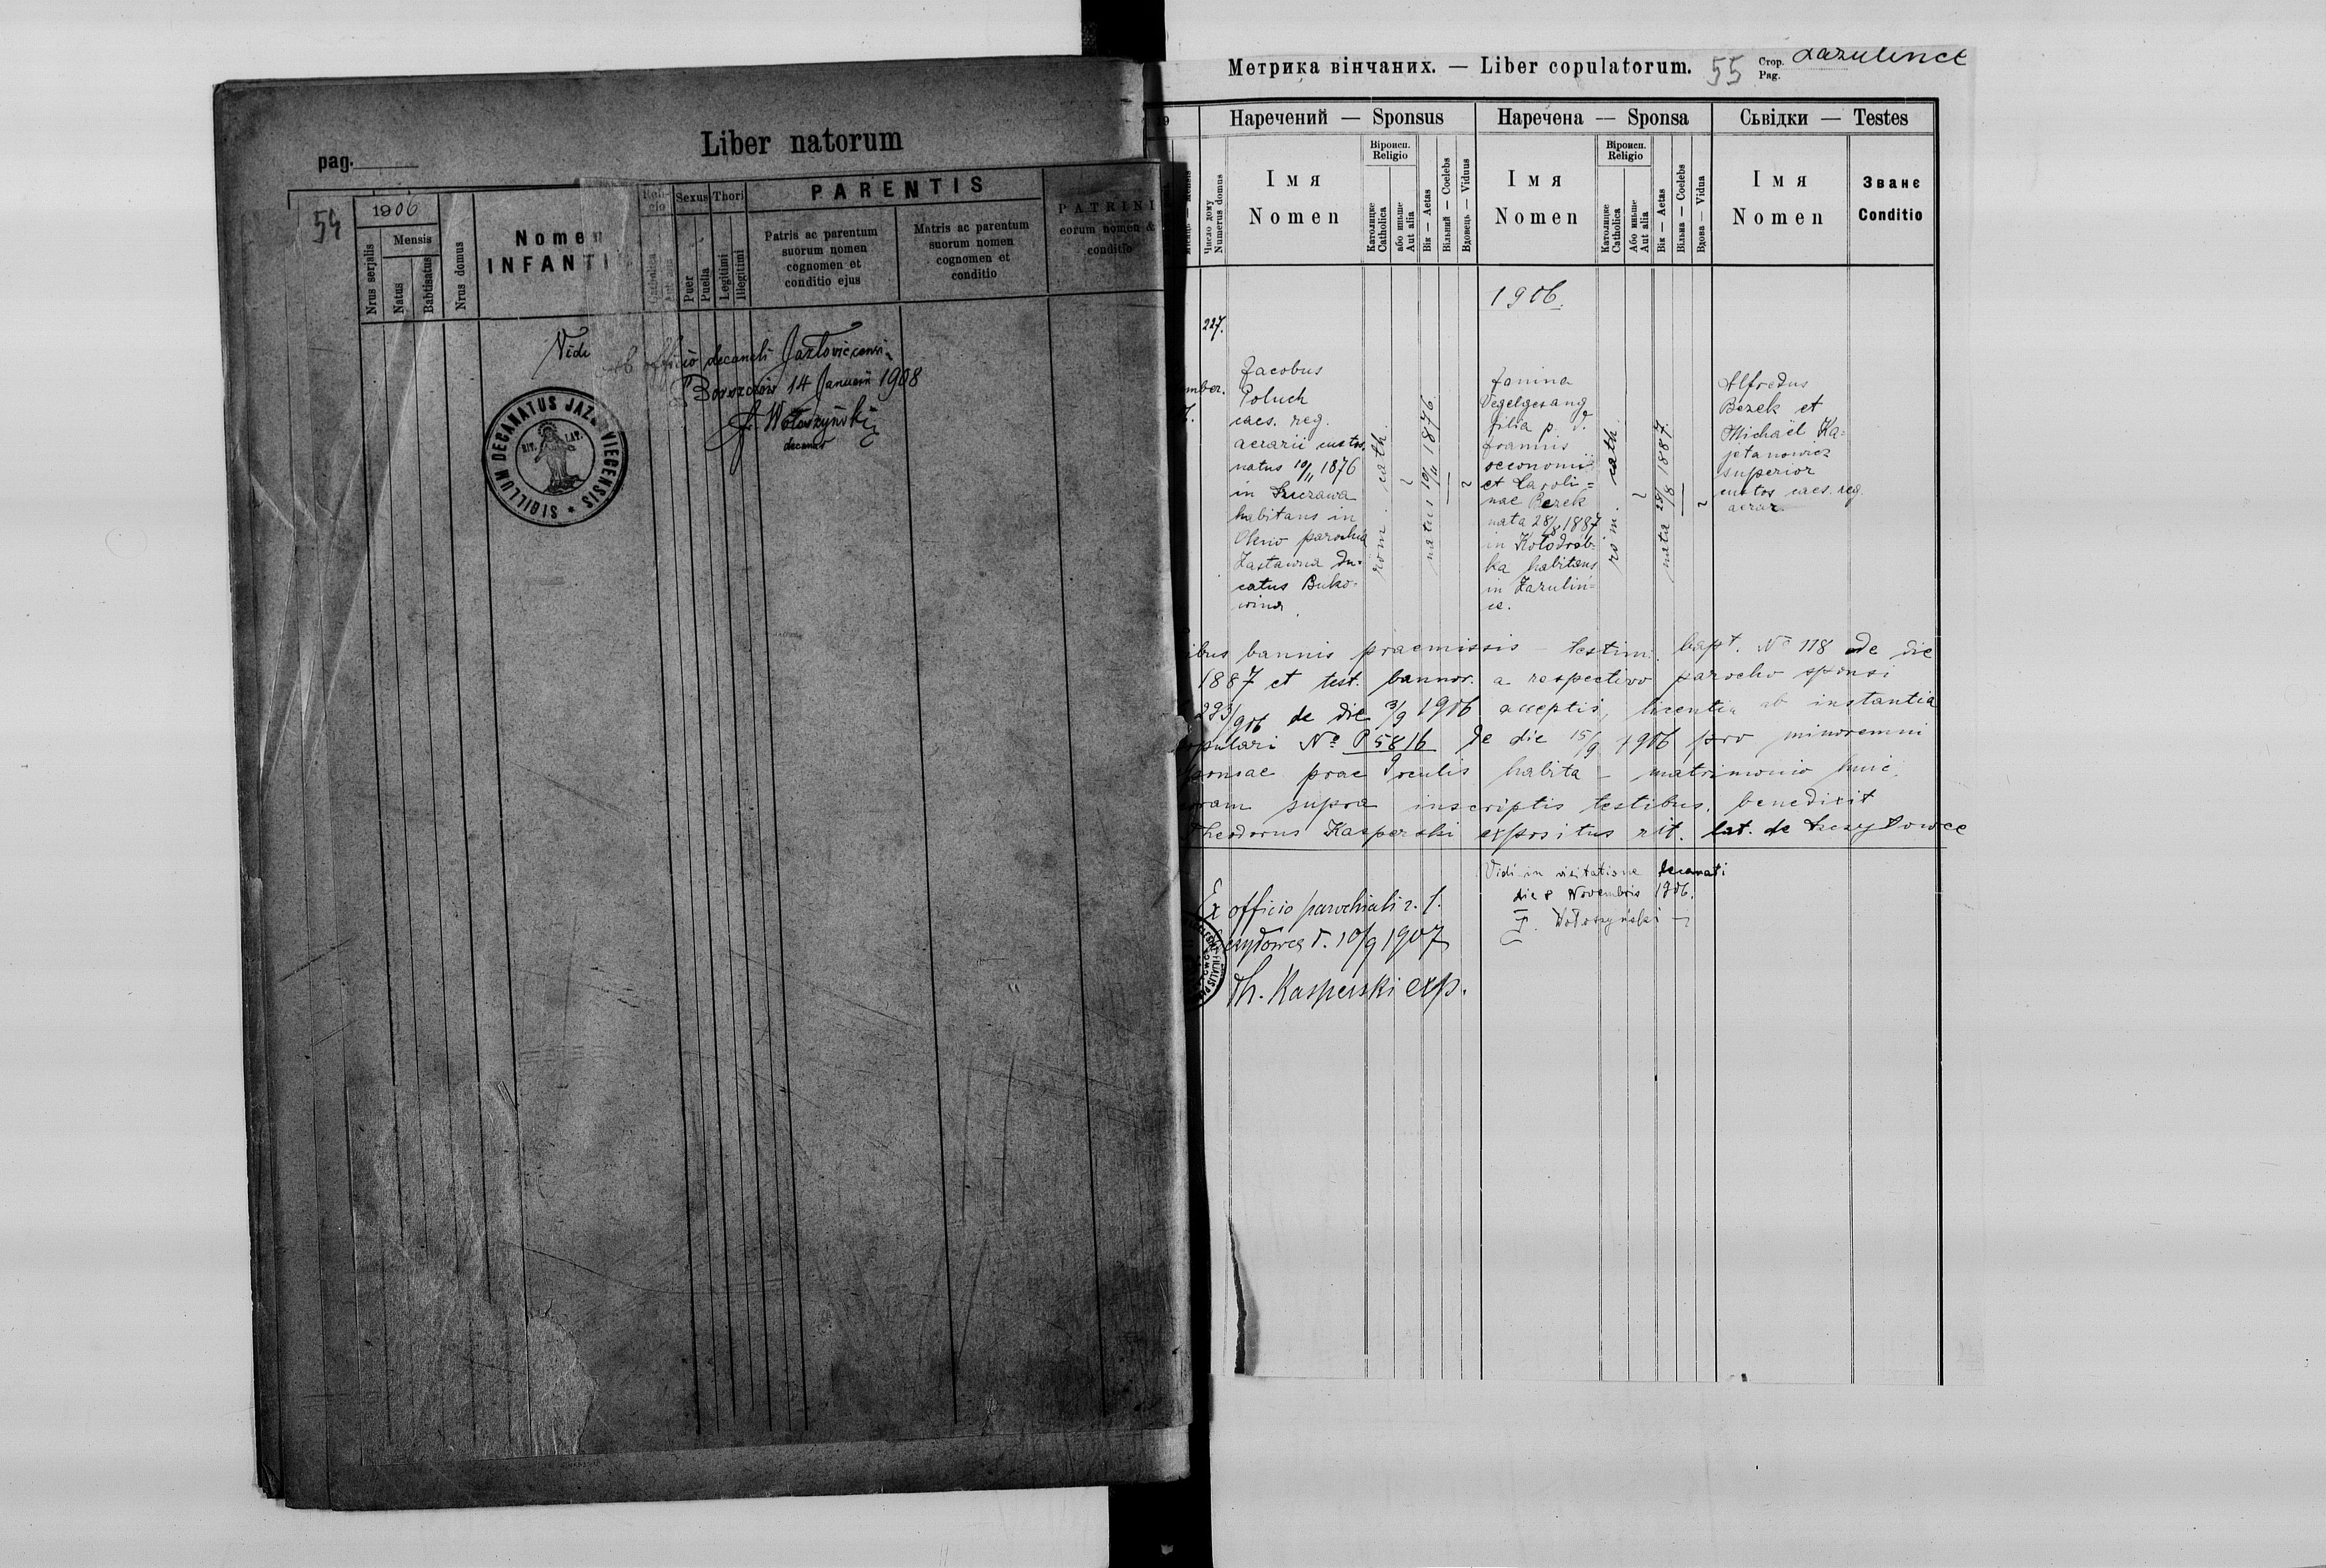 pag.
Liber natorum
54
1906
Mensis
Nrus serjalis
Natus
Babtisatus
Nrus domus
Nomen
INFANTI
Sexus
Puer
Puella
Thori
Legitimi
Illegitimi
PARENTIS
Patris ac parentum
suorum nomen
cognomen et
conditio ejus
Matris ac parentum
suorum nomen
cognomen et
conditio
PATRINI
eorum nomen &
conditio
Vidi
ab officio decanali Jazlovicensi
Borszczów 14 Januarii 1908
F. Wołoszyński
decanus
SIGILLUM DECANATUS JAZLOVIECENSIS
RIT. LAT.
Метрика вінчаних. — Liber copulatorum.
55
Стор.
Pag.
19
Число дому
Numerus domus
Наречений — Sponsus
Імя
Nomen
Віроисп.
Religio
Католицке
Catholica
або иньше
Aut alia
Вік — Aetas
Вільний — Coelebs
Вдовець — Viduus
Наречена — Sponsa
Імя
Nomen
Віроисп.
Religio
Католицке
Catholica
Або иньше
Aut alia
Вік — Aetas
Вільна — Coelebs
Вдова — Vidua
Сьвідки — Testes
Імя
Nomen
Званє
Conditio
1906.
227.
mber.
Jacobus
Poluch
caes. reg.
aerarii custos
natus 10/11 1876
in
habitans in
Okno parochia
Zastawna du-
catus Buko-
wina.
rom. cath.
natus 10/11 1876
Janina
Vogelgesang
filia p. d.
Joannis
oeconomi
et Caroli-
nae Bezek
nata 28/8 1887
in Kołodrób-
ka habitans
in Zazuliń-
ce.
rom. cath.
nata 28/8 1887.
Alfredus
Bezek et
Michaël Ka-
jetanowicz
superior
custos caes. reg.
aerar.
ibus bannis praemissis – testim. bapt. No 118 de die
1887 et test. bannor. a respectivo parocho sponsi
293/906 de die 3/9 1906 acceptis, licentia ab instantia
pupulari No P 5816 de die 15/9 1906 pro minorenni
sponsae prae oculis habita – matrimonio huic
coram supra inscriptis testibus, benedixit
Theodorus Kasperski expositus rit. lat. de Szczytowce
Ex officio parochiali r. l.
10/9 1907
Th. Kasperski exp.
Vidi in visitatione decanali
die 8 Novembris 1906.
F. Wołoszyński